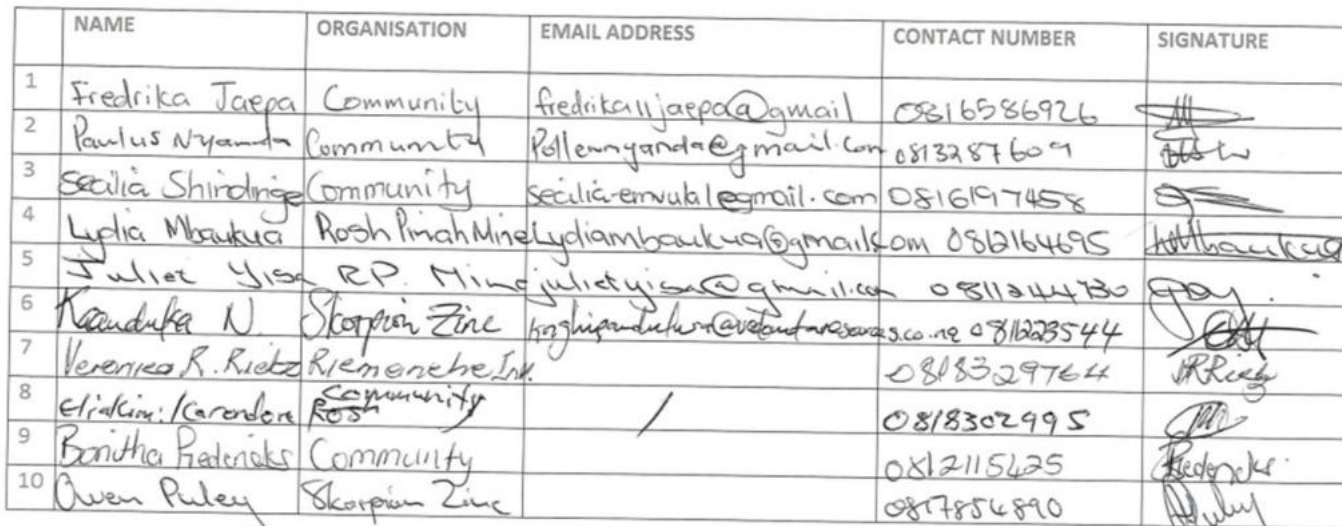 NAME ORGANISATION EMAIL ADDRESS CONTACT NUMBER SIGNATURE
1 Fredrika Jaepa Community fredrika11jaepa@gmail 0816586926
2 Paulus Nyamda Community Pollennyanda@gmail.com 0813287609
3 Secilia Shindinge Community secilia-emvula1@gmail.com 0816197458
4 Lydia Mbaukua Rosh Pinah Mine Lydiambaukua@gmail.com 0812164695
5 Juliet Yisa R.P. Mine julietyisa@gmail.com 0811244730
6 N. Skorpion Zinc 0811223544
7 Veronica R. Rietz Inv. 0818329764
8 Eliakim Community / 0818302995
9 Bonitha Frederiks Community 0812115425
10 Owen Puley Skorpion Zinc 0817854890